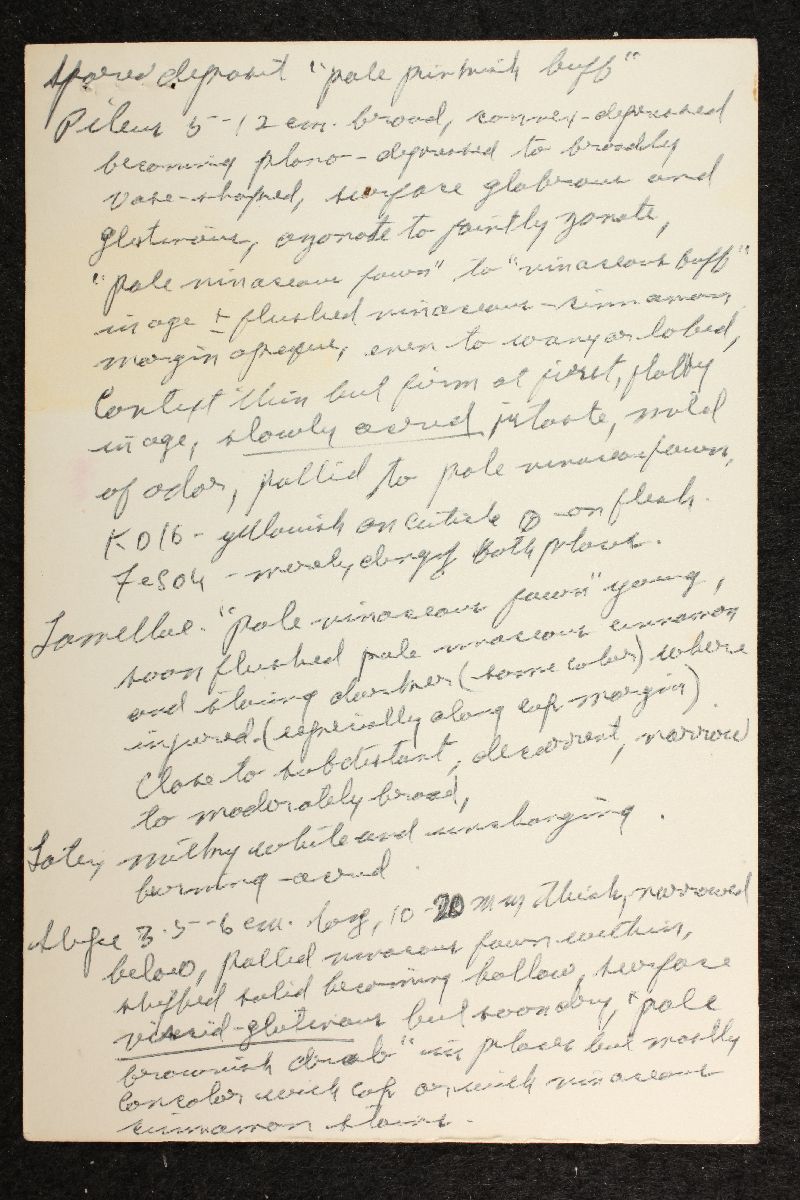 Spores deposit "pale pinkish buff"
Pileus 5-12 cm. broad, convex-depressed
becoming plano-depressed to broadly
vase-shaped, surface glabrous and
glutinous, azonate to faintly zonate,
"pale vinaceous fawn" to "vinaceous buff"
in age ± flushed vinaceous-cinnamon
margin opaque, even to wavy or lobed,
Context thin but firm at first, flabby
in age, slowly acrid in taste, mild
of odor, pallid to pale vinaceous fawn,
KOH - yellowish on cuticle on flesh.
FeSO4 - merely dingy both places.
Lamellae. "pale vinaceous fawn" young,
soon flushed pale vinaceous cinnamon
and staining darker (same color) where
injured (especially along cap margin)
Close to subdistant, decurrent, narrow
to moderately broad,
Latex milky white and unchanging.
burning-acrid
Stipe 3.5-6 cm. long, 10-20 mm thick, narrowed
below, pallid vinaceous fawn within,
stuffed solid becoming hollow, surface
viscid-glutinous but soon dry, "pale
brownish drab" in places but mostly
concolor with cap or with vinaceous
cinnamon stains.